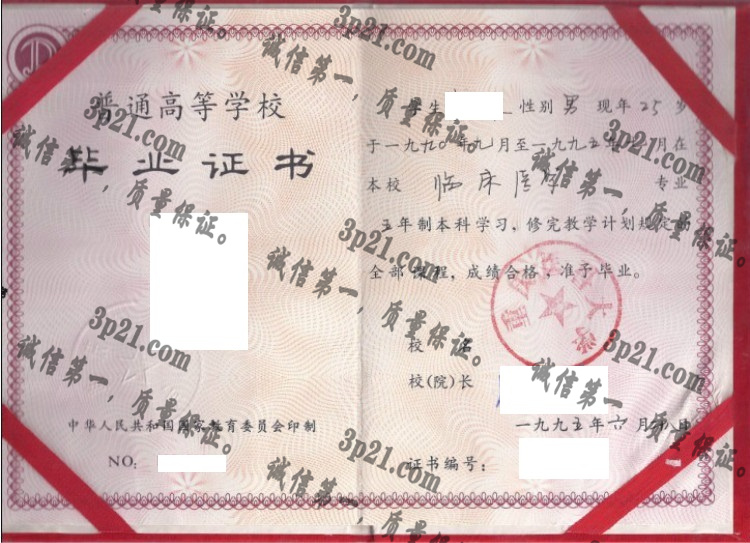 普通高等学校
毕业证书
中华人民共和国国家教育委员会印制
NO:
学生 性别 男 现年 25 岁
于一九九〇年九月至一九九五年 月在
本校 临床医学 专业
五年制本科学习，修完教学计划规定的
全部课程，成绩合格，准予毕业。
校 名
校(院)长
一九九五年六月 日
证书编号：
3p21.com
诚信第一，质量保证。
3p21.com
诚信第一，质量保证。
3p21.com
诚信第一，质量保证。
3p21.com
诚信第一，质量保证。
3p21.com
诚信第一，质量保证。
3p21.com
诚信第一，质量保证。
3p21.com
诚信第一，质量